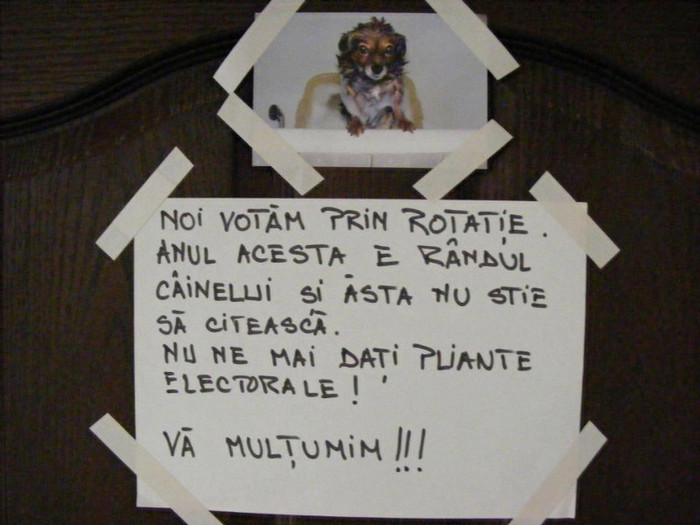 NOI VOTĂM PRIN ROTAȚIE.
ANUL ACESTA E RÂNDUL
CÂINELUI SI ĂSTA NU STIE
SĂ CITEASCĂ.
NU NE MAI DAȚI PLIANTE
ELECTORALE!
VĂ MULȚUMIM!!!